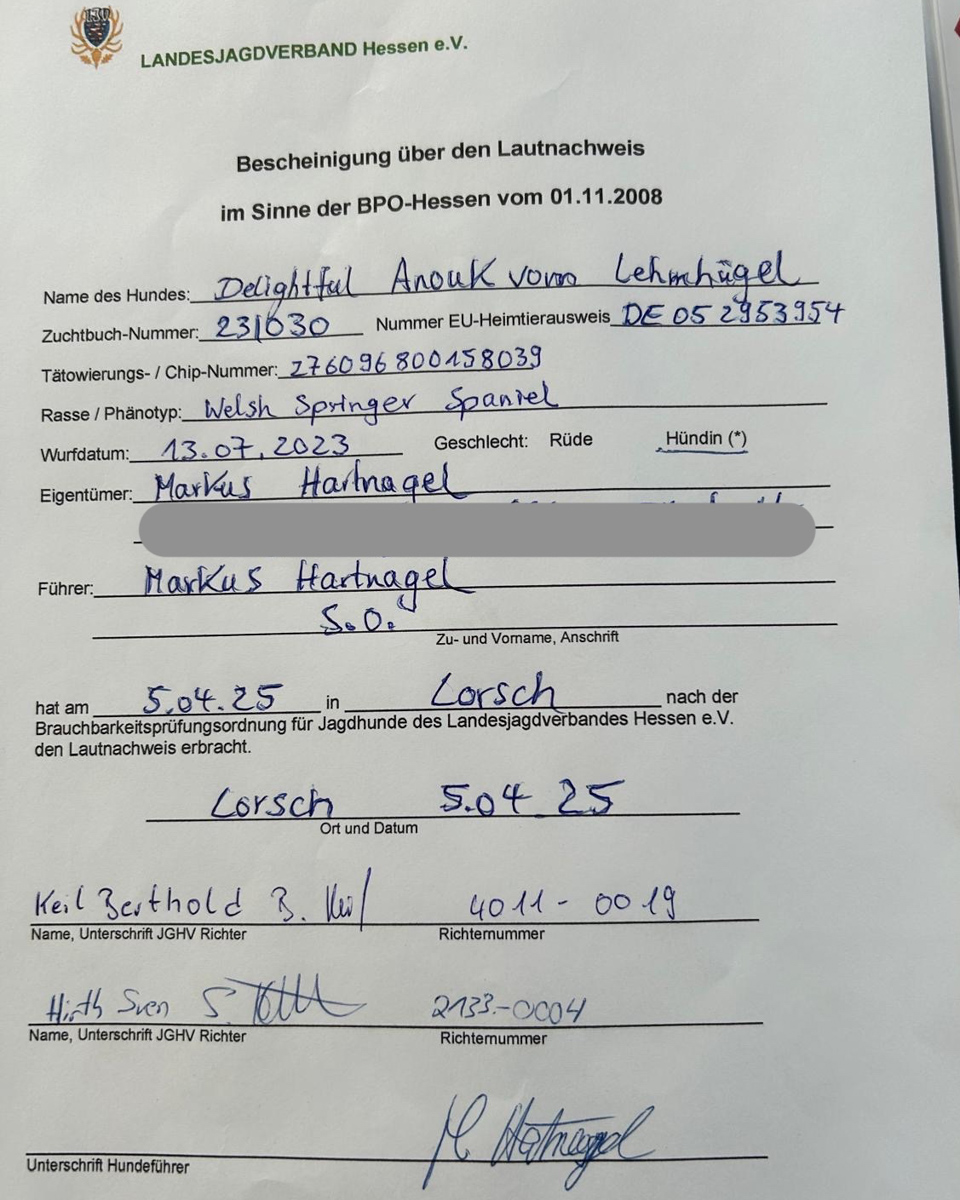 LJV
LANDESJAGDVERBAND Hessen e.V.
Bescheinigung über den Lautnachweis
im Sinne der BPO-Hessen vom 01.11.2008
Name des Hundes: Delightful Anouk vom Lehmhügel
Zuchtbuch-Nummer: 23/030 Nummer EU-Heimtierausweis DE 05 2953954
Tätowierungs- / Chip-Nummer: 276096800158039
Rasse / Phänotyp: Welsh Springer Spaniel
Wurfdatum: 13.07.2023 Geschlecht: Rüde Hündin (*)
Eigentümer: Markus Hartnagel
Führer: Markus Hartnagel
S.O.
Zu- und Vorname, Anschrift
hat am 5.04.25 in Lorsch nach der
Brauchbarkeitsprüfungsordnung für Jagdhunde des Landesjagdverbandes Hessen e.V.
den Lautnachweis erbracht.
Lorsch 5.04.25
Ort und Datum
Keil Berthold B. Keil 4011-0019
Name, Unterschrift JGHV Richter Richternummer
Hirth Sven S. 2133-0004
Name, Unterschrift JGHV Richter Richternummer
M. Hartnagel
Unterschrift Hundeführer